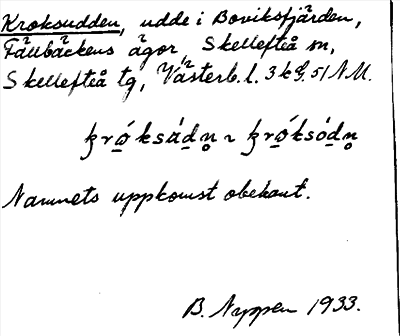 Kroksudden, udde i Boviksfjärden,
Fällbäckens ägor, Skellefteå sn,
Skellefteå tg, Västerb. l. 3 k g. 51 N.M.
Namnets uppkomst obekant.
B. Nyppen 1933.